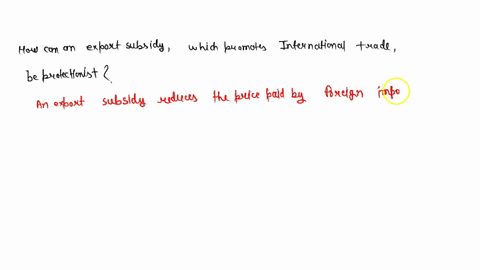 How can an export subsidy, which promotes International trade,
be protectionist?
An export subsidy reduces the price paid by Foreign impo